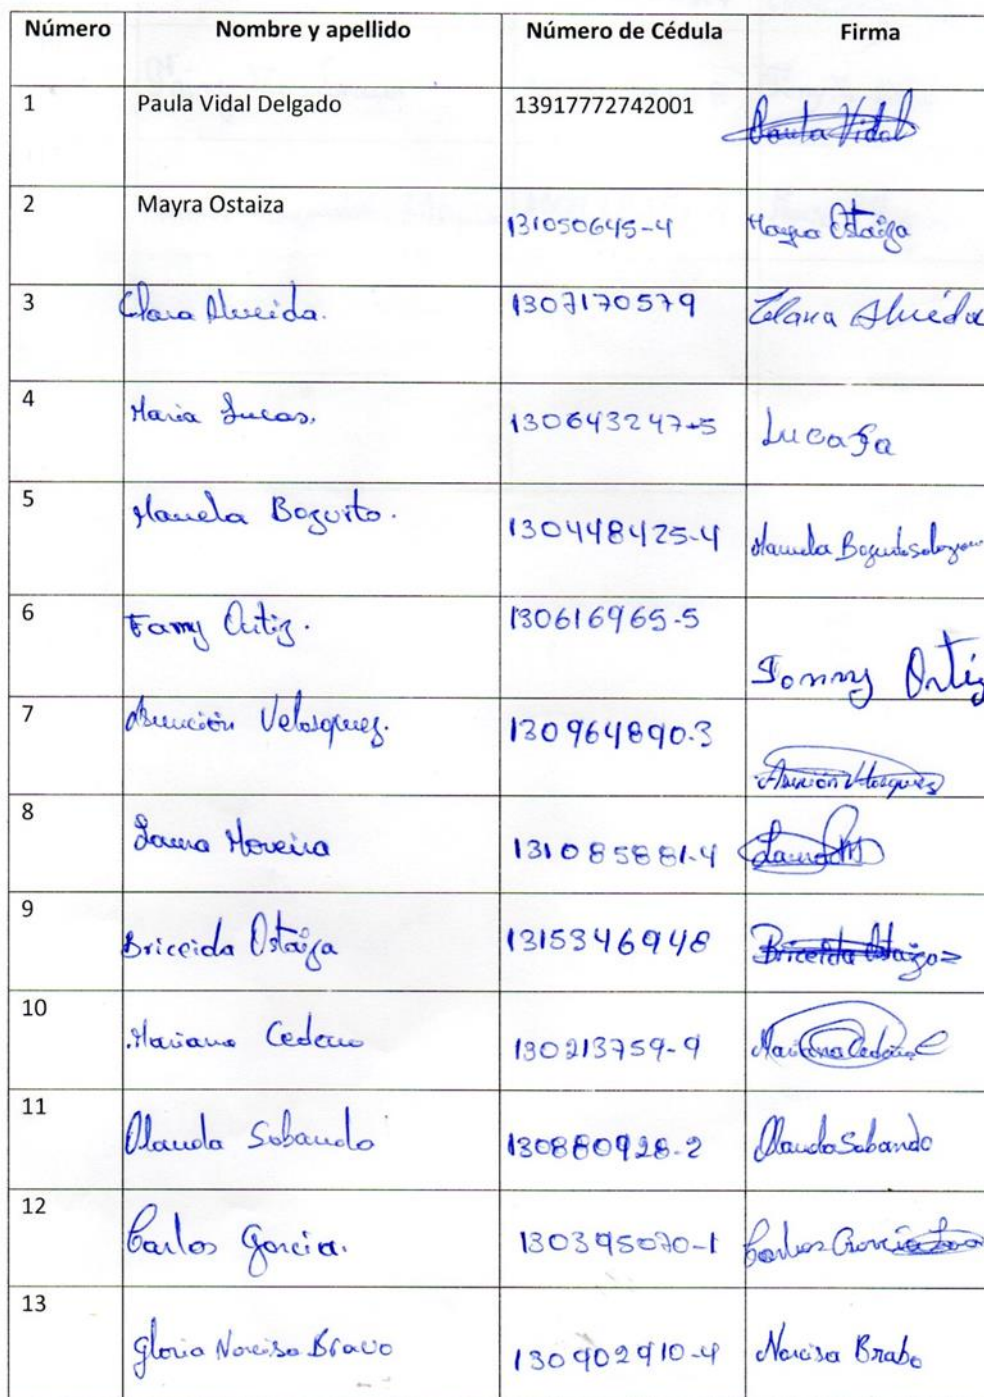 Número Nombre y apellido Número de Cédula Firma
1 Paula Vidal Delgado 13917772742001 Paula Vidal
2 Mayra Ostaiza 131050645-4 Mayra Ostaiza
3 Clara Alveida. 1307170579 Clara
4 Maria Lucas. 130643247-5 Luca
5 Manuela Bogurto. 130448425-4 Manuela
6 Fanny Ortiz. 130616965-5 Fonny Ortiz
7 Asunción Velasquez. 130964890-3 Asunción
8 Laura Moreira 131085881-4 Laura M
9 Briceida Ostaiza 1315346948 Briceida Ostaiza
10 Mariana Cedeno 130213759-9 Mariana Cedeño
11 Olanda Sabando 130880928-2 Olanda Sabando
12 Carlos Garcia. 130395070-1 Carlos Garcia
13 Gloria Narcisa Bravo 130902910-4 Narcisa Brabo